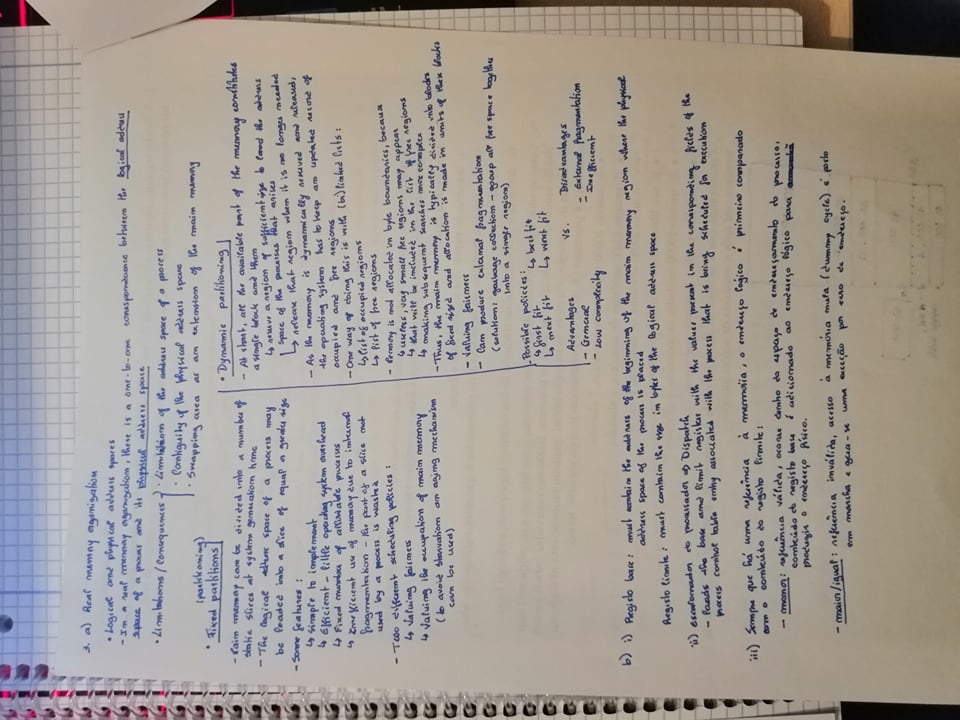 3. a) Real memory organization
• Logical and physical address spaces
- In a real memory organization, there is a one-to-one correspondence between the logical address
space of a process and its physical address space
• Limitations / Consequences
· Limitation of the address space of a process
· Contiguity of the physical address space
· Swapping area as an extension of the main memory
(partitioning)
• Fixed partitions
- Main memory can be divided into a number of
static slices at system generation time
- The logical address space of a process may
be loaded into a slice of equal or greater size
- Some features:
↳ Simple to implement
↳ Efficient - little operating system overhead
↳ Fixed number of allowable processes
↳ Inefficient use of memory due to internal
fragmentation - the part of a slice not
used by a process is wasted
- Two different scheduling policies:
↳ Valuing fairness
↳ Valuing the occupation of main memory
(to avoid starvation an aging mechanism
can be used)
• Dynamic partitioning
- At start, all the available part of the memory constitutes
a single block and then
↳ reserve a region of sufficient size to load the address
space of the processes that arises
↳ release that region when it is no longer needed
- As the memory is dynamically reserved and released,
the operating system has to keep an updated record of
occupied and free regions
- One way of doing this is with (bi)linked lists:
↳ list of occupied regions
↳ list of free regions
- Memory is not allocated in byte boundaries, because
↳ useless, very small free regions may appear
↳ that will be included in the list of free regions
↳ making subsequent searches more complex
- Thus, the main memory is typically divided into blocks
of fixed sized and allocation is made in units of these blocks
- Valuing fairness
- Can produce external fragmentation
(solution: garbage collection - group all free space together
into a single region)
- Possible policies:
↳ first fit ↳ best fit
↳ next fit ↳ worst fit
Advantages vs. Disadvantages
- General - External fragmentation
- Low complexity - Inefficient
b) i) Registo base: must contain the address of the beginning of the main memory region where the physical
address space of the process is placed
Registo limite: must contain the size in bytes of the logical address space
ii) escalonador do processador ⇒ Dispatch
- Loads the base and limit register with the values present in the corresponding fields of the
process control table entry associated with the process that is being scheduled for execution
iii) Sempre que há uma referência à memória, o endereço lógico é primeiro comparado
com o conteúdo do registo limite:
- menor: referência válida, ocorre dentro do espaço de endereçamento do processo,
conteúdo do registo base é adicionado ao endereço lógico para
produzir o endereço físico.
- maior/igual: referência inválida, acesso à memória nula (dummy cycle) é posto
em marcha e gera-se uma exceção por erro de endereço.